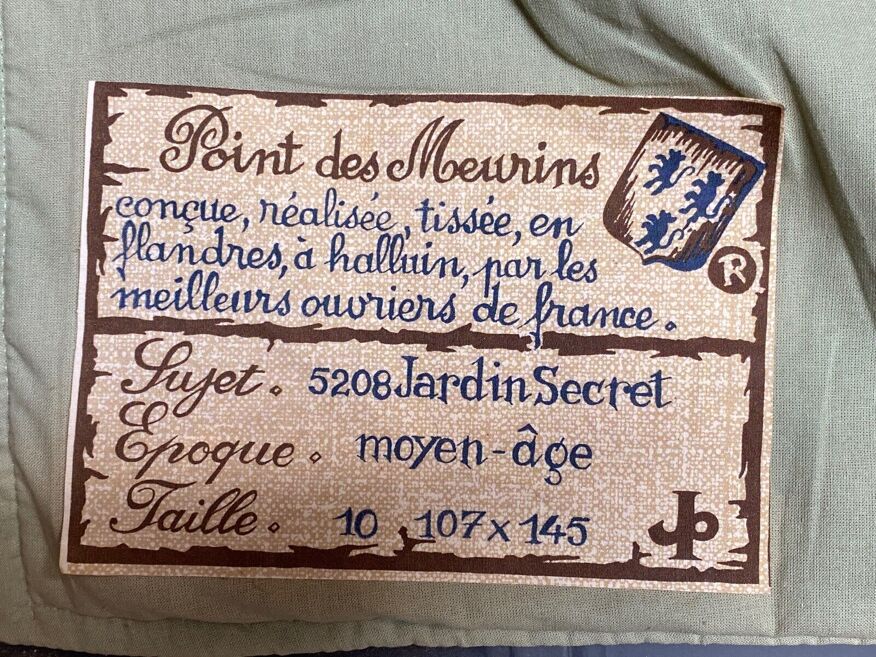 Point des Meurins
conçue, réalisée, tissée, en
flandres, à halluin, par les
meilleurs ouvriers de france.
R
Sujet. 5208 Jardin Secret
Époque. moyen-âge
Taille. 10 107 x 145
JP